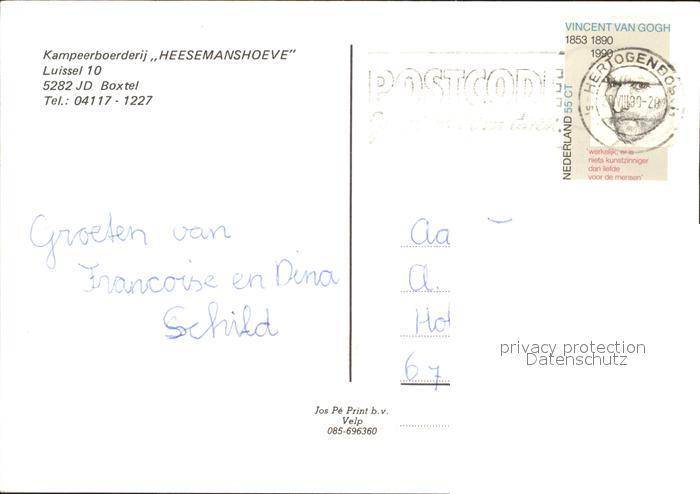 Kampeerboerderij „HEESEMANSHOEVE"
Luissel 10
5282 JD Boxtel
Tel.: 04117 - 1227
VINCENT VAN GOGH
1853 1890
1990
NEDERLAND 55 CT
'werkelijk, er is
niets kunstzinniger
dan liefde
voor de mensen'
POSTCODE
Groeten van
Francoise en Dina
Schild
Aa
A.
Hol
67
privacy protection
Datenschutz
Jos Pé Print b.v.
Velp
085-696360